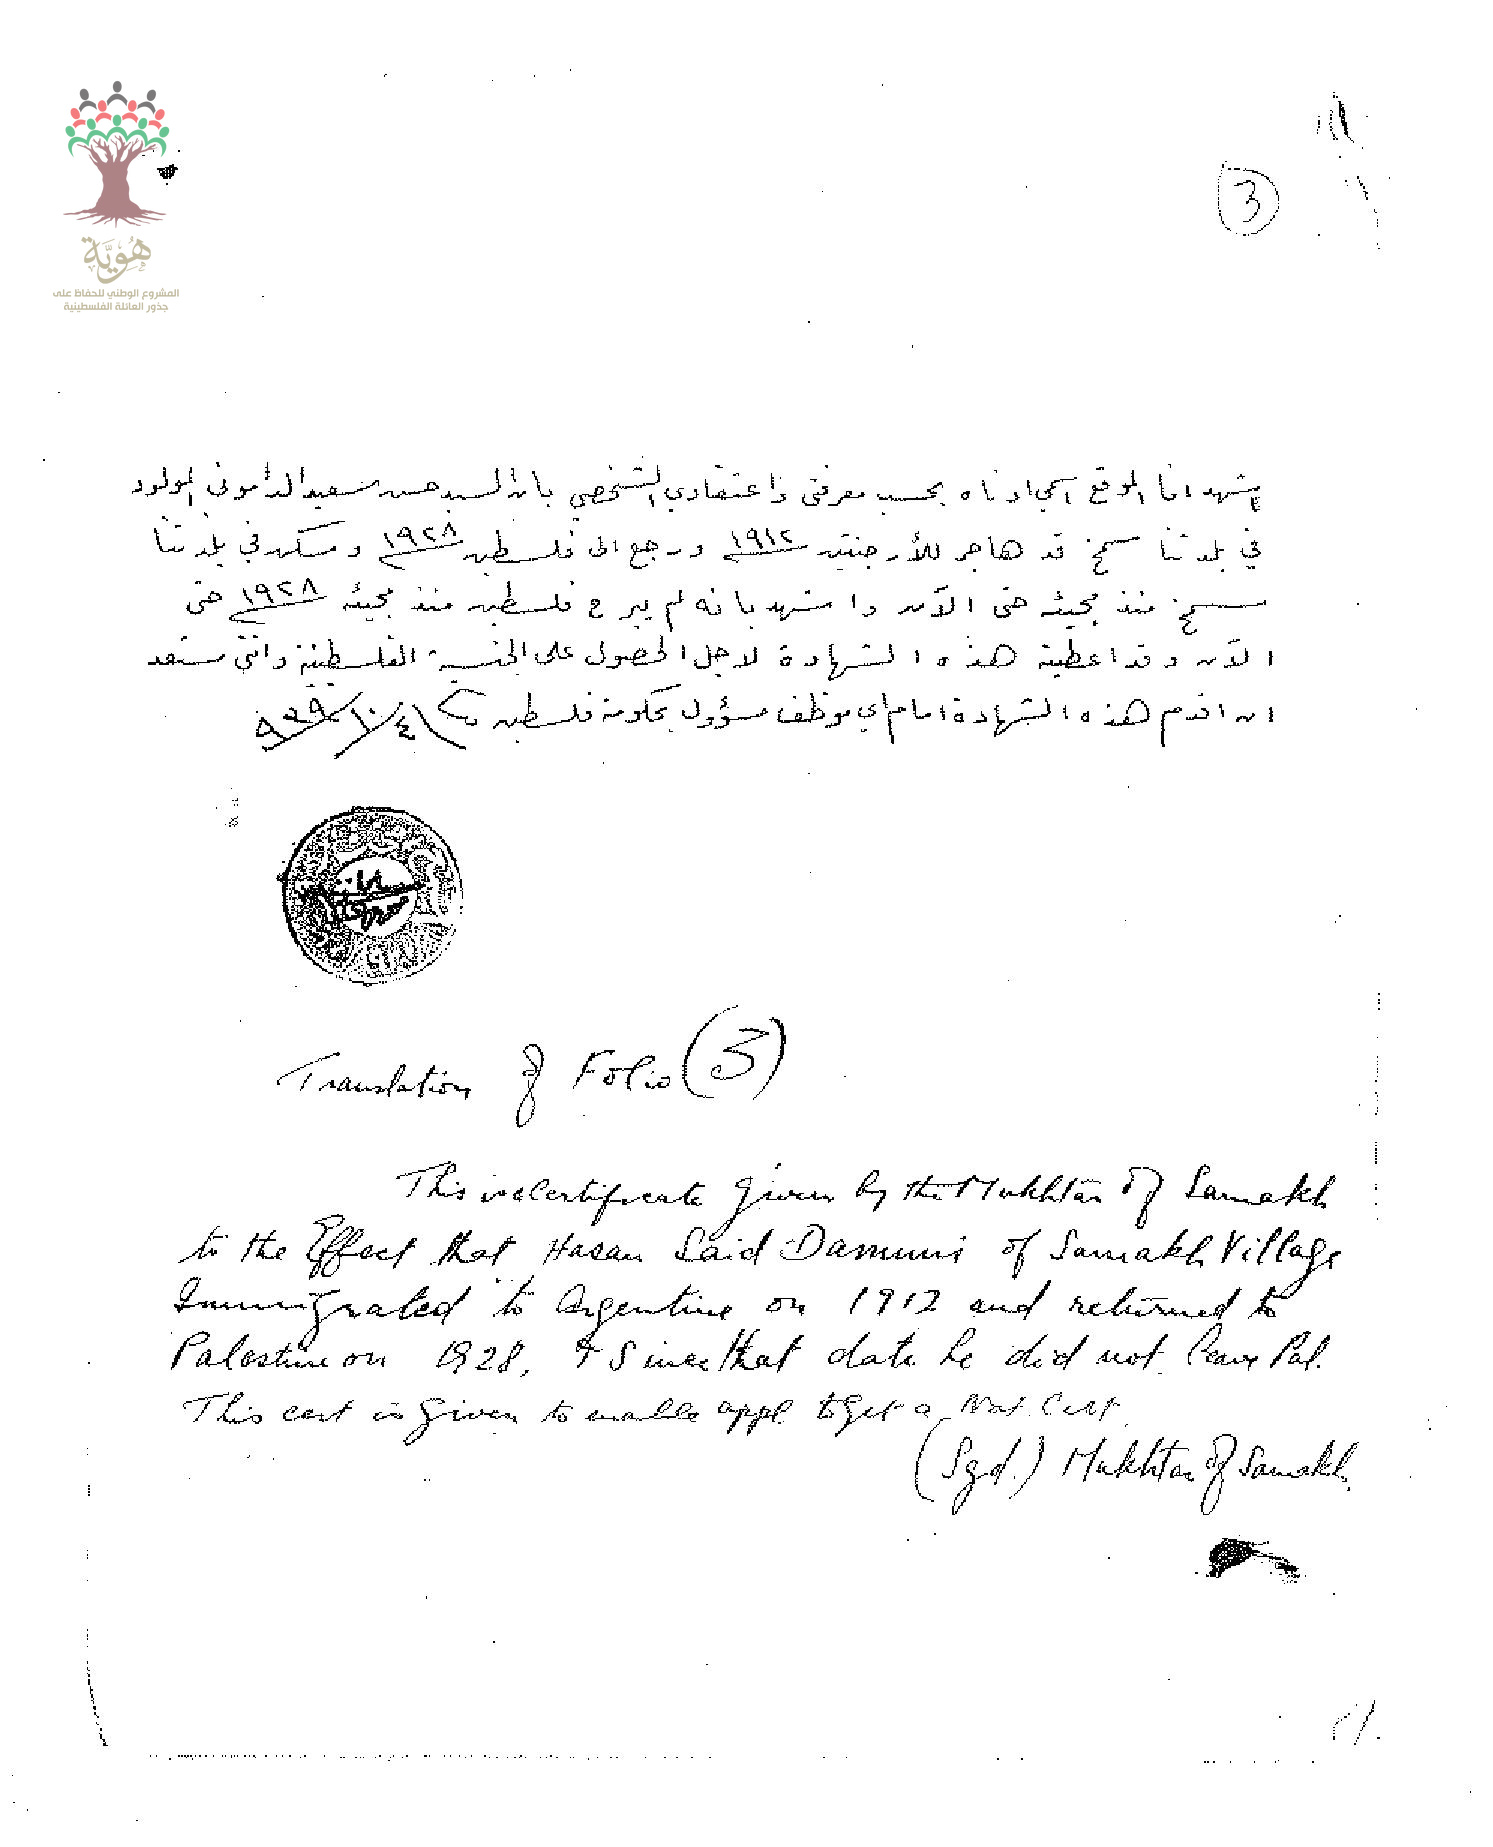 هُوِيَّة
المشروع الوطني للحفاظ على
جذور العائلة الفلسطينية
3
اشهد انا الموقع اسمي ادناه بحسب معرفتي واعتقادي الشخصي بان السيد حسن سعيد الداموني المولود
في بلدتنا سمخ قد هاجر للأرجنتين ١٩١٢ ورجع الى فلسطين ١٩٢٨ وسكن في بلدتنا
سمخ منذ مجيئه حتى الآن واشهد بانه لم يبرح فلسطين منذ مجيئه ١٩٢٨ حتى
الآن وقد اعطيته هذه الشهادة لاجل الحصول على الجنسية الفلسطينية وانني مستعد
ان اقدم هذه الشهادة امام اي موظف مسؤول بحكومة فلسطين ٤/١٠/٩٣٩
Translation of Folio (3)
This is a certificate given by the Mukhtar of Samakh
to the Effect that Hasan Said Damuni of Samakh Village
Immigrated to Argentine on 1912 and returned to
Palestine on 1928, & Since that date he did not leave Pal.
This cert is given to enable appl. to get a Nat. Cert.
(Sgd.) Mukhtar of Samakh